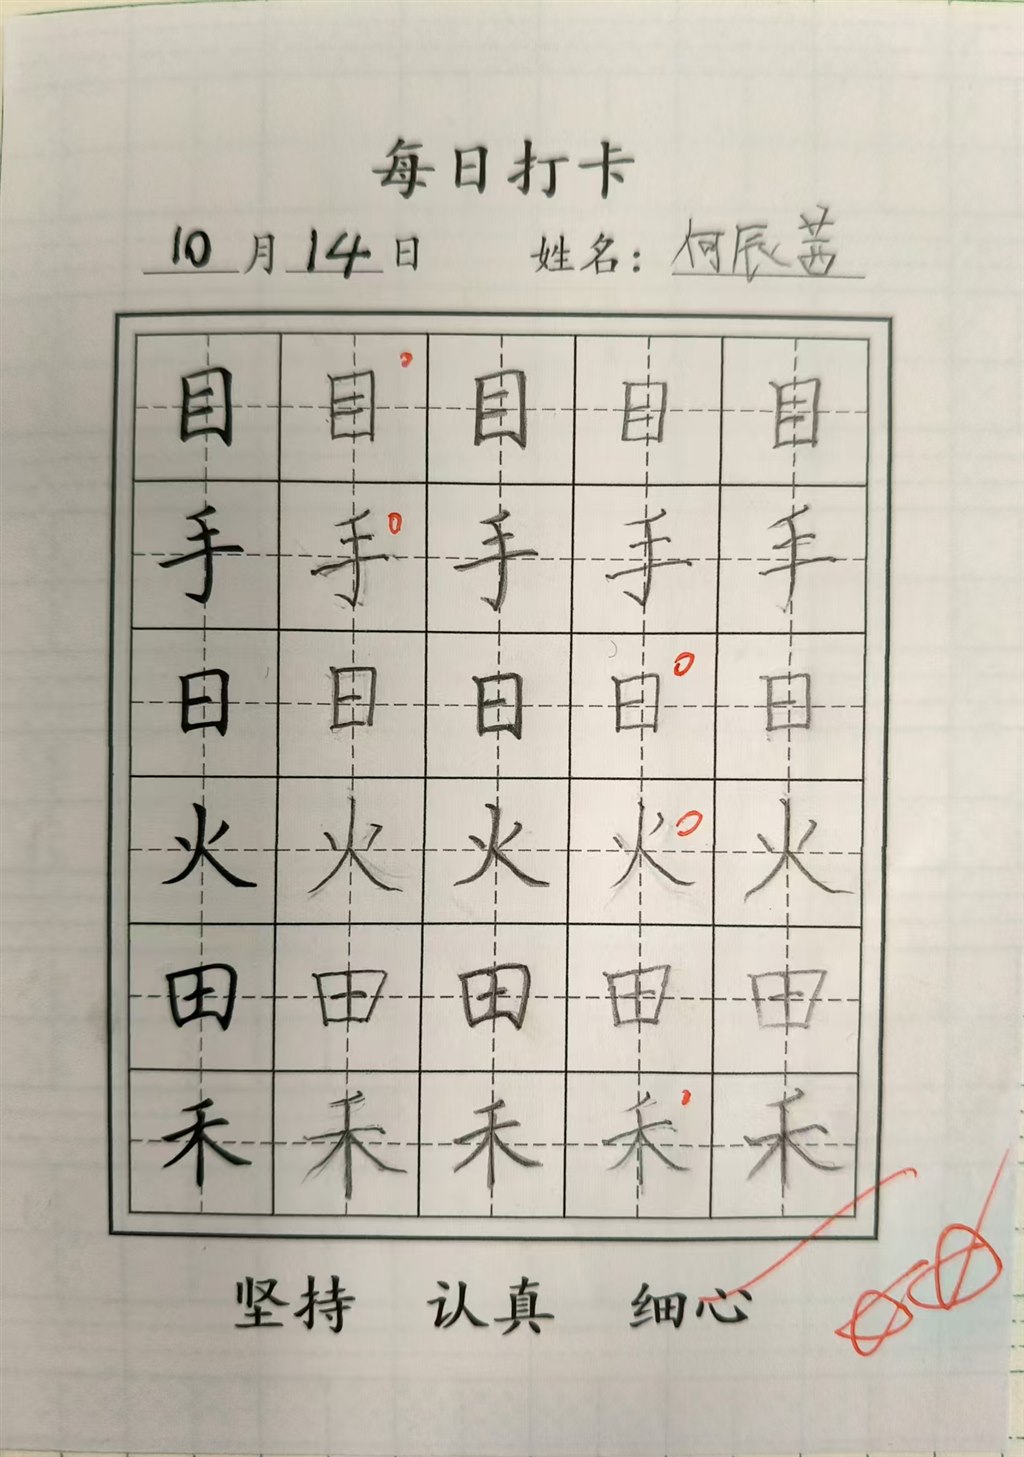 每日打卡
10月14日 姓名：何辰茜
目目目目目
手手手手手
日日日日日
火火火火火
田田田田田
禾禾禾禾禾
坚持 认真 细心